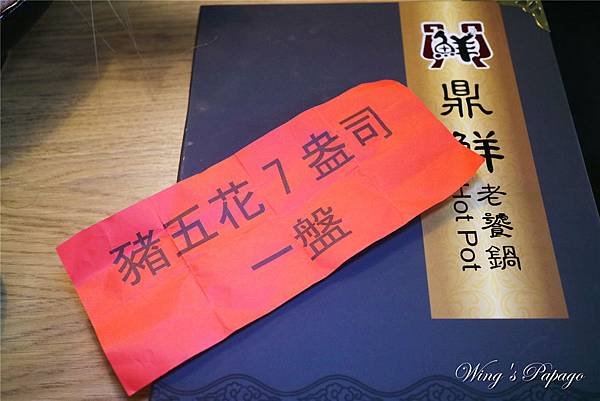 鮮
鼎鮮
老饕鍋
Hot Pot
豬五花7盎司
一盤
Wing's Papago